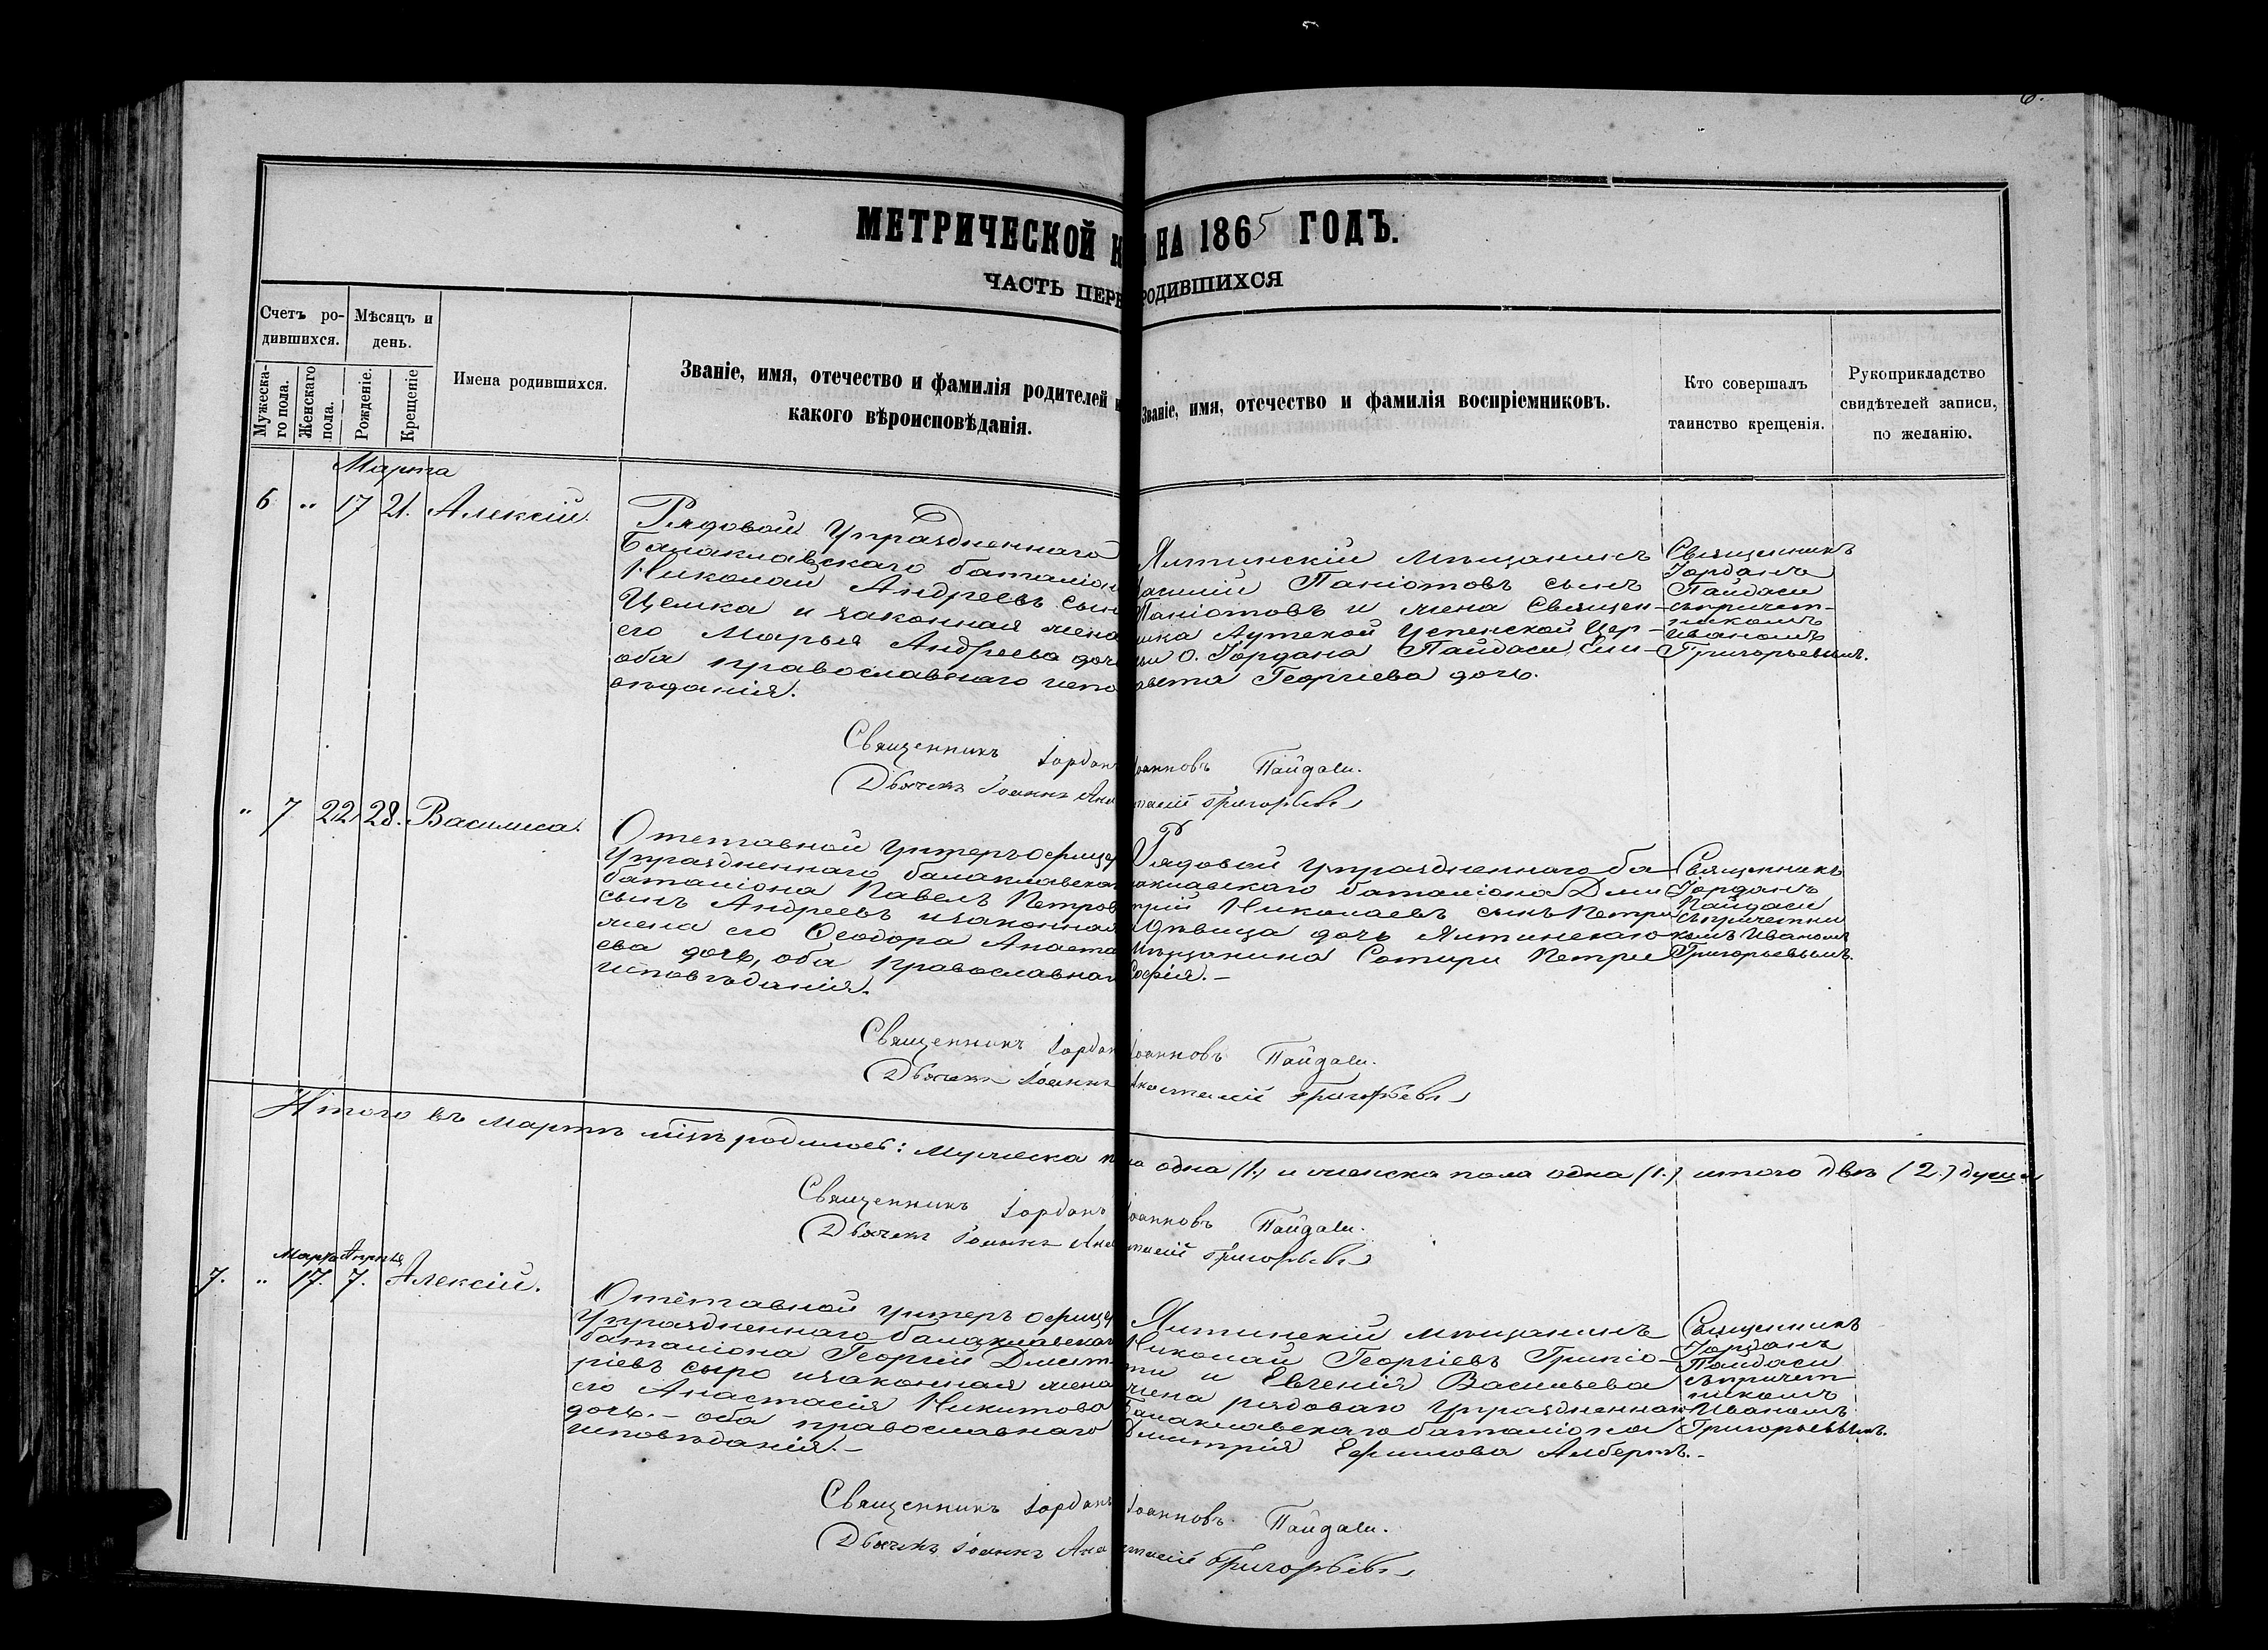 6.
МЕТРИЧЕСКОЙ К НА 1865 ГОДЪ.
ЧАСТЬ ПЕРВ РОДИВШИХСЯ
Счетъ ро-
дившихся.
Мужеска-
го пола.
Женскаго
пола.
Мѣсяцъ и
день.
Рожденіе.
Крещеніе
Имена родившихся.
Званіе, имя, отечество и фамилія родителей и
какого вѣроисповѣданія.
Званіе, имя, отечество и фамилія воспріемниковъ.
Кто совершалъ
таинство крещенія.
Рукоприкладство
свидѣтелей записи,
по желанію.
Марта
6 " 17 21. Алексій.
Рядовой Упраздненнаго
Балаклавскаго баталіон
Николай Андреевъ сын
и законная жена
его Марья Андреева доч
оба православнаго испо
вѣданія.
Ялтинскій Мѣщанинъ
асилій Паніотовъ сынъ
Паніотовъ и жена Священ-
ника Аутской Успенской Цер-
кви О. Іордана Пайдаси Ели-
авета Георгіева дочь.
Священникъ
Іорданъ
Пайдаси
съ причет-
никомъ
Иваномъ
Григорьевымъ.
Священникъ Іордан Іоанновъ Пайдаси.
Дьячекъ Іоаннъ Анастасій Григорьевъ
" 7 22 28. Василиса.
Отставной унтеръ офице
Упраздненнаго балаклавска
баталіона Павелъ Петров
сынъ Андреевъ и законная
жена его Ѳеодора Анаста
ева дочь, оба православна
исповѣданія.
Рядовой Упраздненнаго ба-
лаклавскаго баталіона Дми
трій Николаевъ сынъ Петри
и дѣвица дочь Ялтинскаго
Мѣщанина Сотири Петри
Софія.-
Священникъ
Іорданъ
Пайдаси
съ причетни
комъ Иваномъ
Григорьевымъ.
Священникъ Іордан Іоанновъ Пайдаси.
Дьячекъ Іоаннъ Анастасій Григорьевъ
Итого въ Мартѣ мѣсцѣ родилось: Мужеска пола одна (1.) и женска пола одна (1.) итого двѣ (2.) души
Священникъ Іорданъ Іоанновъ Пайдаси.
Дьячекъ Іоаннъ Анастасій Григорьевъ
Марта Апрѣля
7. " 17. 7. Алексій.
Отставной унтеръ офице
Упраздненнаго балаклавска
баталіона Георгій Дмит-
ріевъ и законная жена
его Анастасія Никитова
дочь.- оба православнаго
исповѣданія.-
Ялтинскій мѣщанинъ
Николай Георгіевъ
и Евгенія Васильева
жена рядоваго Упраздненнаго
Балаклавскаго баталіона
Дмитрія Ефимова
Священникъ
Іорданъ
Пайдаси
съ причет-
никомъ
Иваномъ
Григорьевымъ.
Священникъ Іорданъ Іоанновъ Пайдаси.
Дьячекъ Іоаннъ Анастасій Григорьевъ